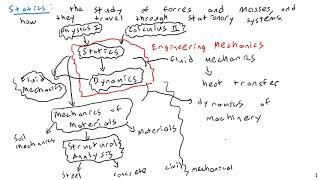 Statics: the study of forces and masses, and
how they travel through stationary systems
Physics I
Calculus II
Statics
Engineering Mechanics
Fluid
Mechanics
Dynamics
fluid mechanics
heat transfer
dynamics of
machinery
Mechanics of
Materials
Soil
mechanics
Materials
Structural
Analysis
Steel
concrete
civil
mechanical
1